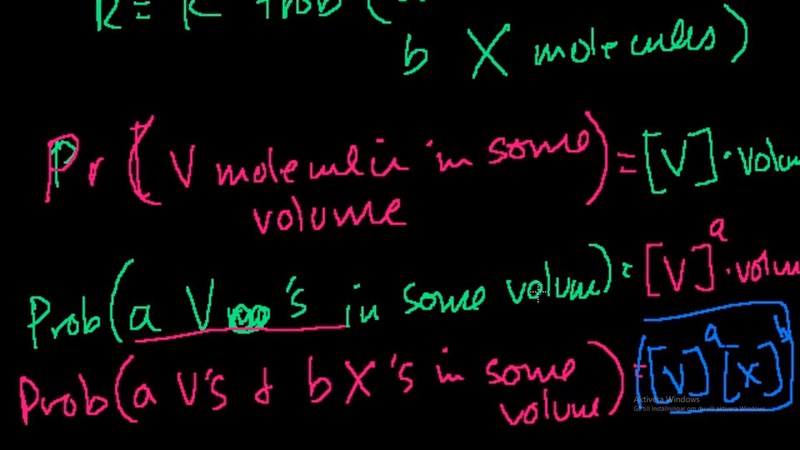 R = K Prob (
b X molecules)
Pr (V molecule in some volume) = [V] · volum
Prob (a V's in some volume) = [V]^a · volum
Prob (a V's & b X's in some volume) = ([V]^a [X]^b
Aktivera Windows
Gå till Inställningar om du vill aktivera Windows.